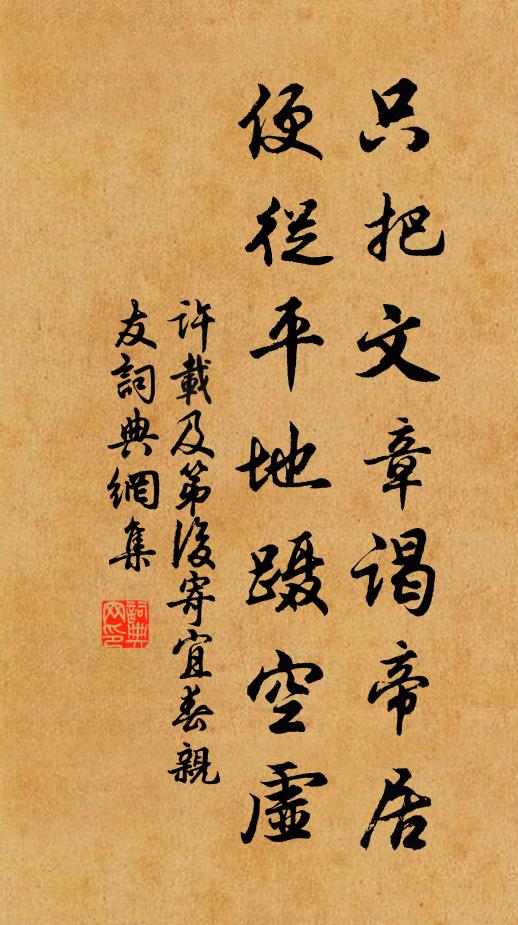 只把文章謁帝居
便從平地蹑空虛
許載及第後寄宜春親
友詞典網集
詞典
网印